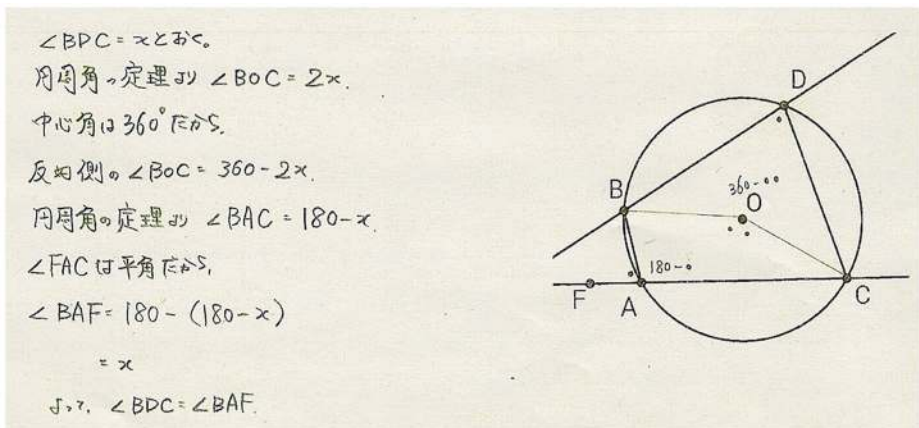 ∠BDC=xとおく。
円周角の定理より ∠BOC=2x.
中心角は360°だから、
反対側の∠BOC=360-2x.
円周角の定理より ∠BAC=180-x.
∠FACは平角だから、
∠BAF=180-(180-x)
=x
よって、∠BDC=∠BAF.
D
B
360-∘∘
O
180-∘
F
A
C